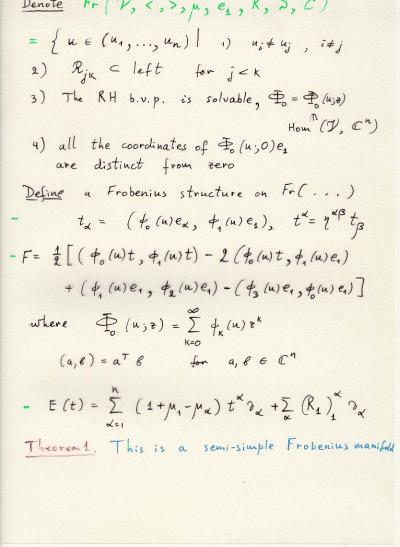 Denote Fr(V, <,>, μ, e₁, R, S, C)
= { u ∈ (u₁, ..., uₙ) | 1) uᵢ ≠ uⱼ , i ≠ j
2) R_{jk} ⊂ left for j < k
3) The RH b.v.p. is solvable, Φ₀ = Φ₀(u;z)
∩
Hom (V, ℂⁿ)
4) all the coordinates of Φ₀(u;0)e₁
are distinct from zero
Define a Frobenius structure on Fr(...)
- t_α = (ϕ₀(u)e_α, ϕ₁(u)e₁), t^α = η^{αβ} t_β
- F = ½ [(ϕ₀(u)t, ϕ₁(u)t) - 2(ϕ₀(u)t, ϕ₁(u)e₁)
+ (ϕ₁(u)e₁, ϕ₂(u)e₁) - (ϕ₃(u)e₁, ϕ₀(u)e₁)]
where Φ₀(u;z) = ∑_{k=0}^{∞} ϕ_k(u)z^k
(a,b) = aᵀb for a, b ∈ ℂⁿ
- E(t) = ∑_{α=1}^{n} (1+μ₁-μ_α) t^α ∂_α + ∑_α (R₁)^α_1 ∂_α
Theorem 1. This is a semi-simple Frobenius manifold